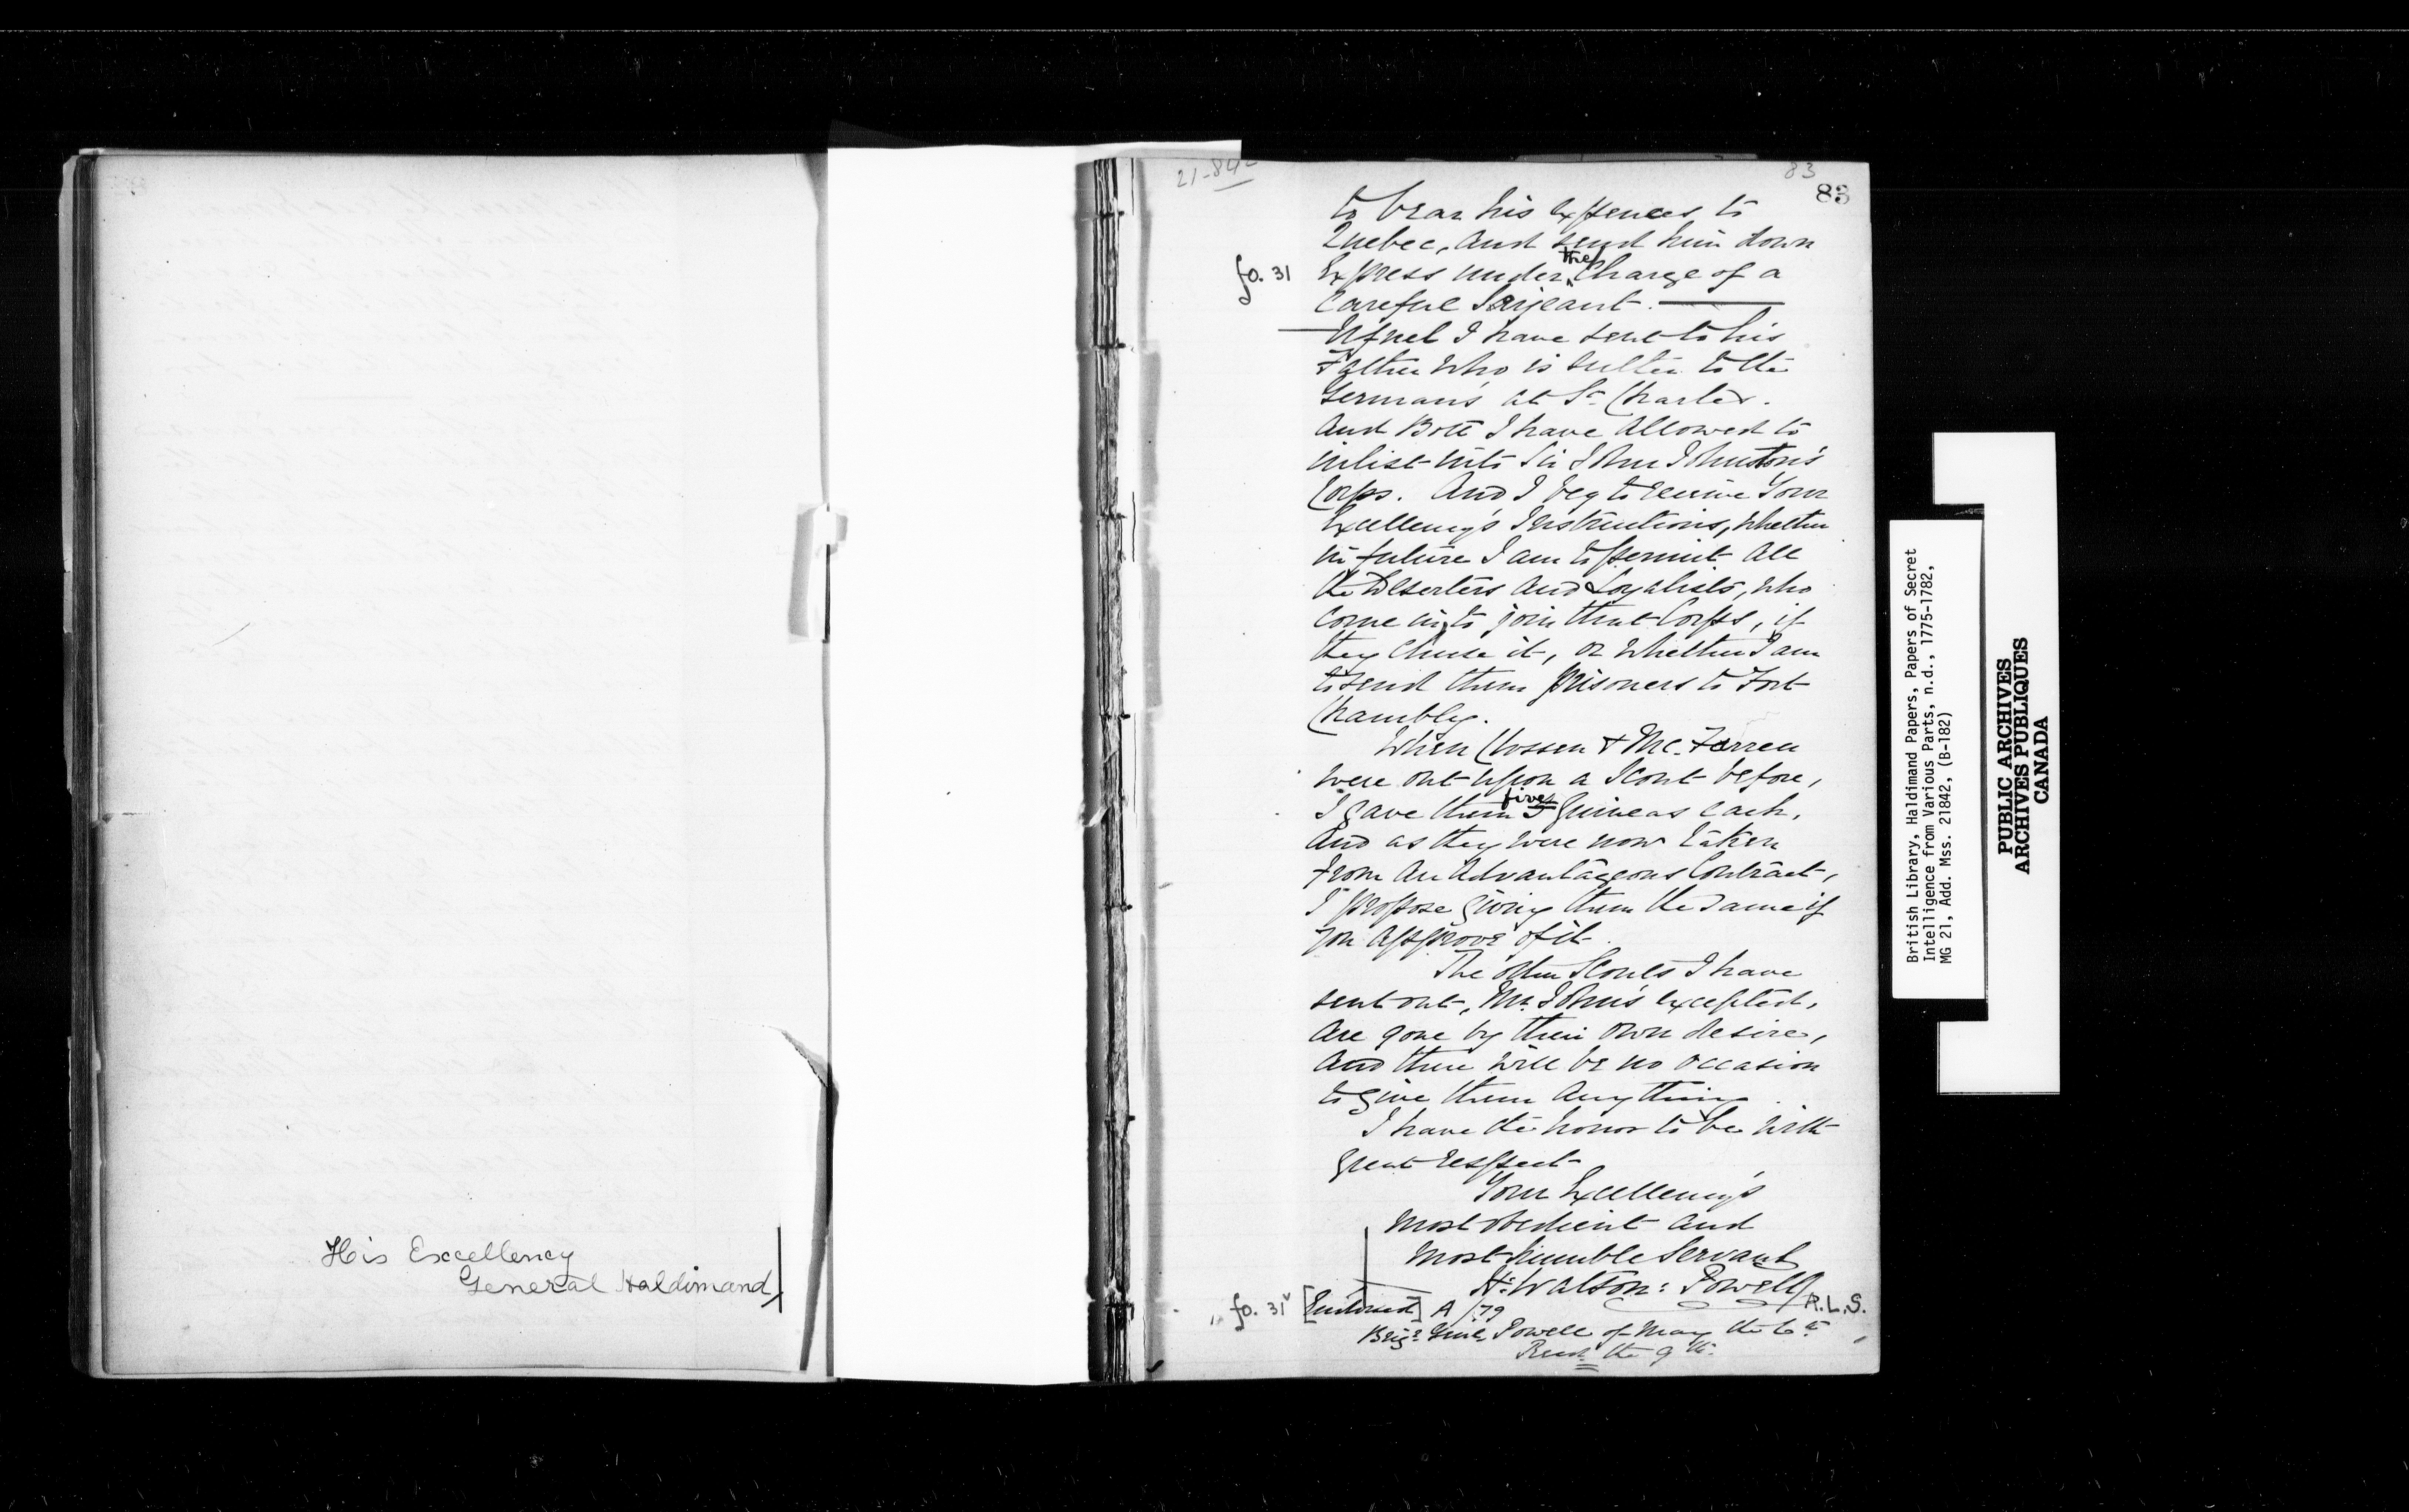 His Excellency
General Haldimand
21-84
83
83
to bear his expences to
Quebec, and send him down
fo. 31
Express under the Charge of a
Careful Sarjeant.
I have sent to his
Father who is Sutler to the
Germans at St Charles.
And Bott I have allowed to
inlist into Sir John Johnston's
Corps. And I beg to receive Your
Excellency's Instructions, whether
in future I am to permit all
the Deserters and Loyalists, who
come in, to join that Corps, if
they chuse it, or whether I am
to send them prisoners to Fort
Chambly.
When Crossen & Mc. Farren
were out upon a Scout before,
I gave them five Guineas each,
And as they were now taken
from an Advantageous Contract,
I propose giving them the same if
you approve of it.
The other Scouts I have
sent out, Mr. John's excepted,
are gone by their own desire,
and there will be no occasion
to give them anything.
I have the honor to be with
great respect
Your Excellency's
most obedient and
most humble Servant
H: Watson: Powell
A.L.S.
fo. 31v [Endorsed] A /79
Brigr. Genl. Powell of May the 6th
Recd. the 9th.
British Library, Haldimand Papers, Papers of Secret
Intelligence from Various Parts, n.d., 1775-1782,
MG 21, Add. Mss. 21842, (B-182)
PUBLIC ARCHIVES
ARCHIVES PUBLIQUES
CANADA